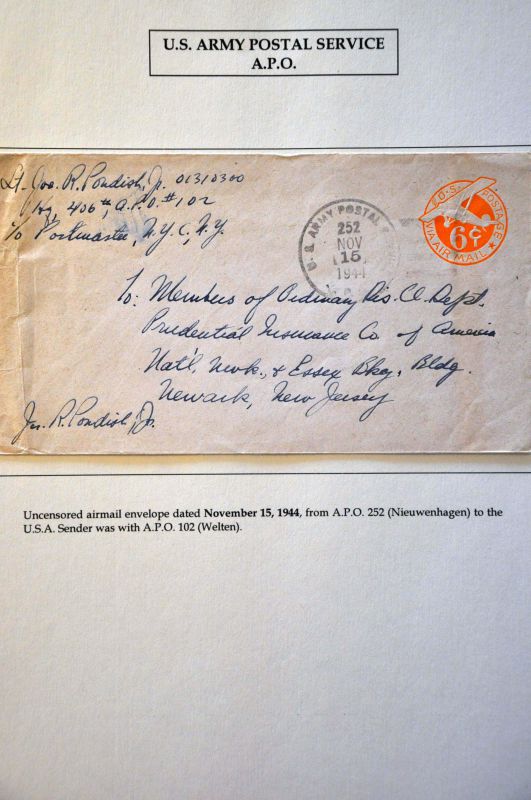 U.S. ARMY POSTAL SERVICE
A.P.O.
Lt. Jos. R. Pondish, Jr. 01310300
Hq. 406th, A.P.O. #102
c/o Postmaster, N.Y.C., N.Y.
U.S. ARMY POSTAL
252
NOV
15
1944
U.S. POSTAGE
6¢
VIA AIR MAIL
To: Members of Ordinary Dis. Cl. Dept.
Prudential Insurance Co. of America
Nat'l. Nwk., & Essex Bkg. Bldg.
Newark, New Jersey
Jos. R. Pondish, Jr.
Uncensored airmail envelope dated November 15, 1944, from A.P.O. 252 (Nieuwenhagen) to the
U.S.A. Sender was with A.P.O. 102 (Welten).